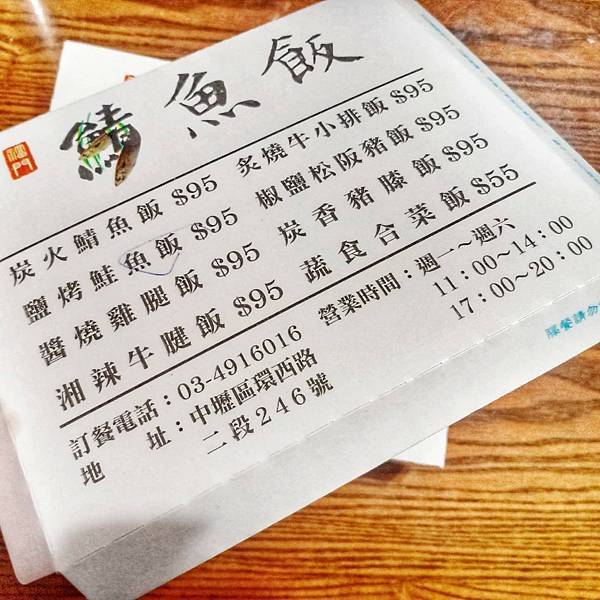 鯖魚飯
福門
炭火鯖魚飯 $95 炙燒牛小排飯 $95
鹽烤鮭魚飯 $95 椒鹽松阪豬飯 $95
醬燒雞腿飯 $95 炭香豬膝飯 $95
湘辣牛腱飯 $95 蔬食合菜飯 $55
訂餐電話：03-4916016
地址：中壢區環西路
二段246號
營業時間：週一～週六
11：00～14：00
17：00～20：00
隔餐請勿